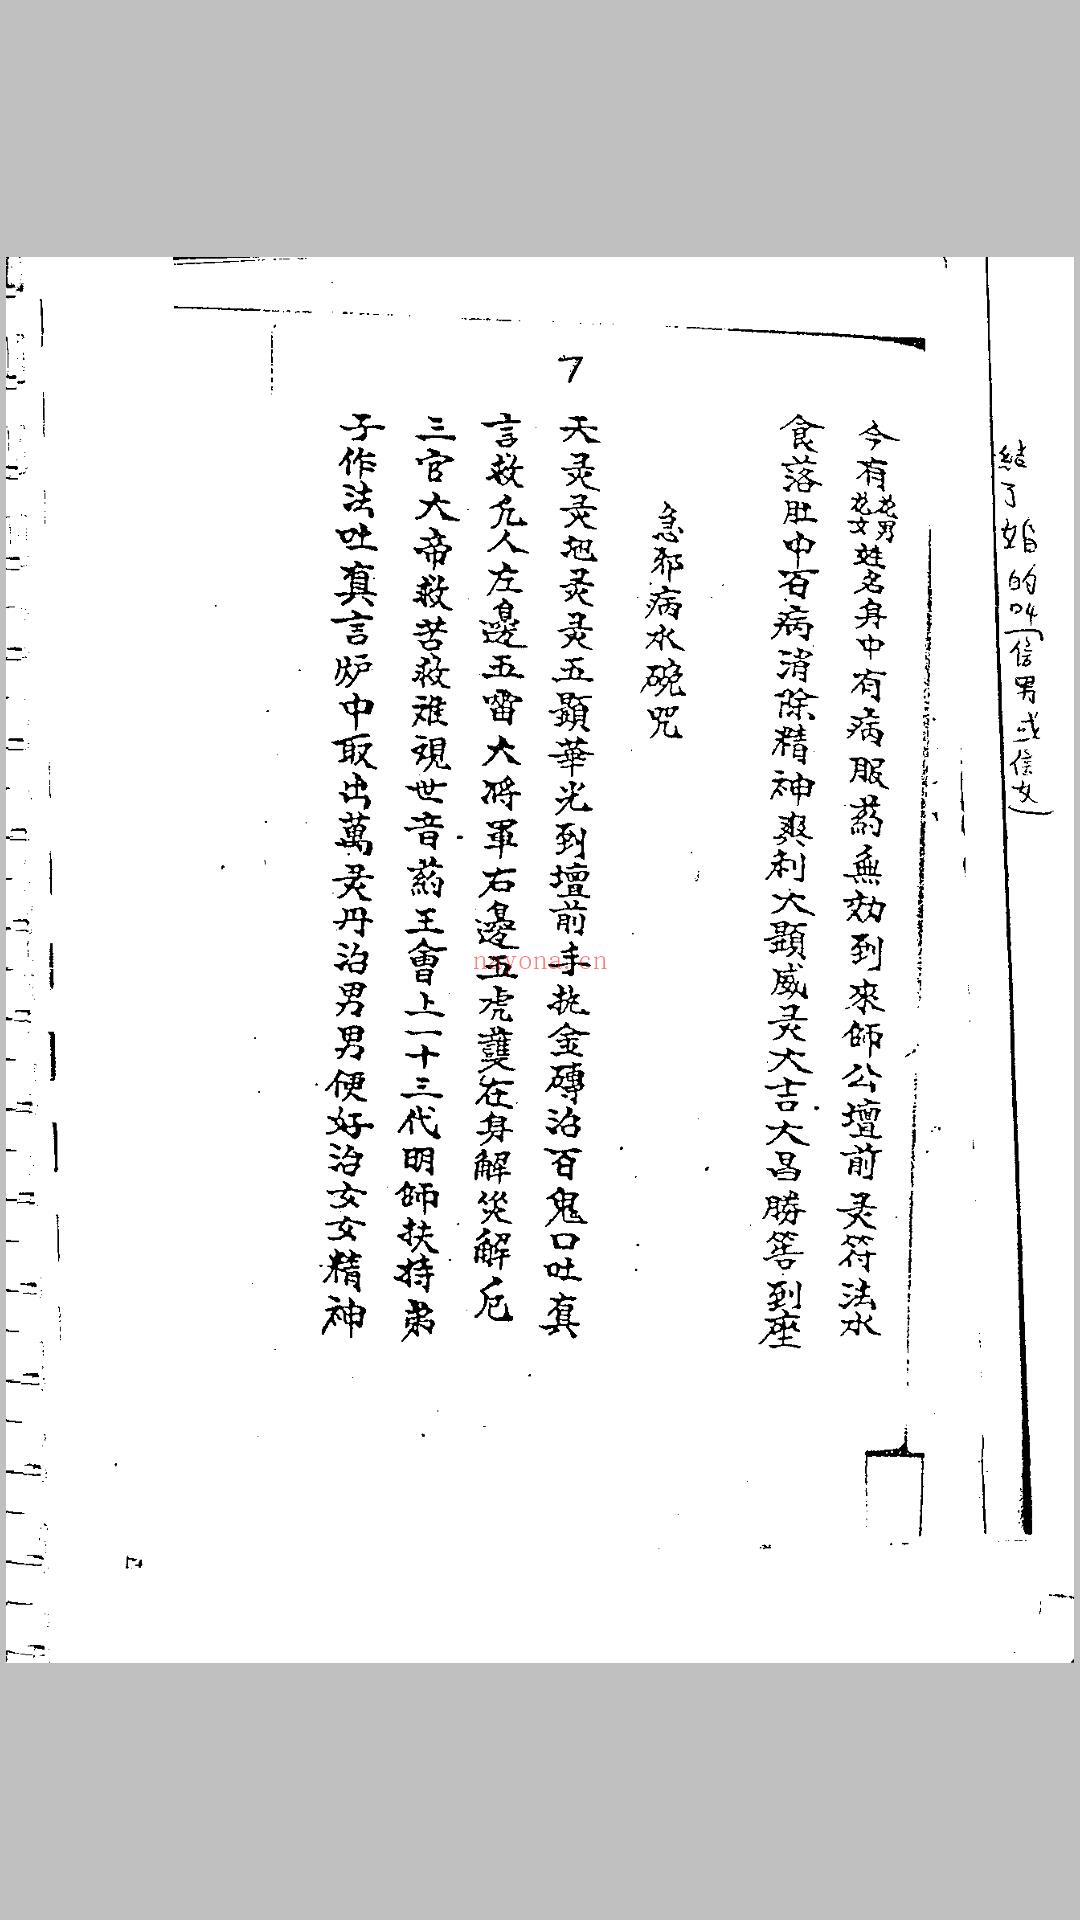 結了婚的叫(信男或信女)
7
今有花男花女姓名身中有病服葯無効到來師公壇前灵符法水
食落肚中百病消除精神爽利大顕威灵大吉大昌勝筶到座
急邪病水碗咒
天灵灵地灵灵五顕華光到壇前手扡金磚治百鬼口吐真
言救凢人左邊五雷大将軍右邊五虎護在身解災解厄
三官大帝救苦救难観世音葯王會上一十三代明師扶持弟
子作法吐真言炉中取出萬灵丹治男男便好治女女精神
nayona.cn